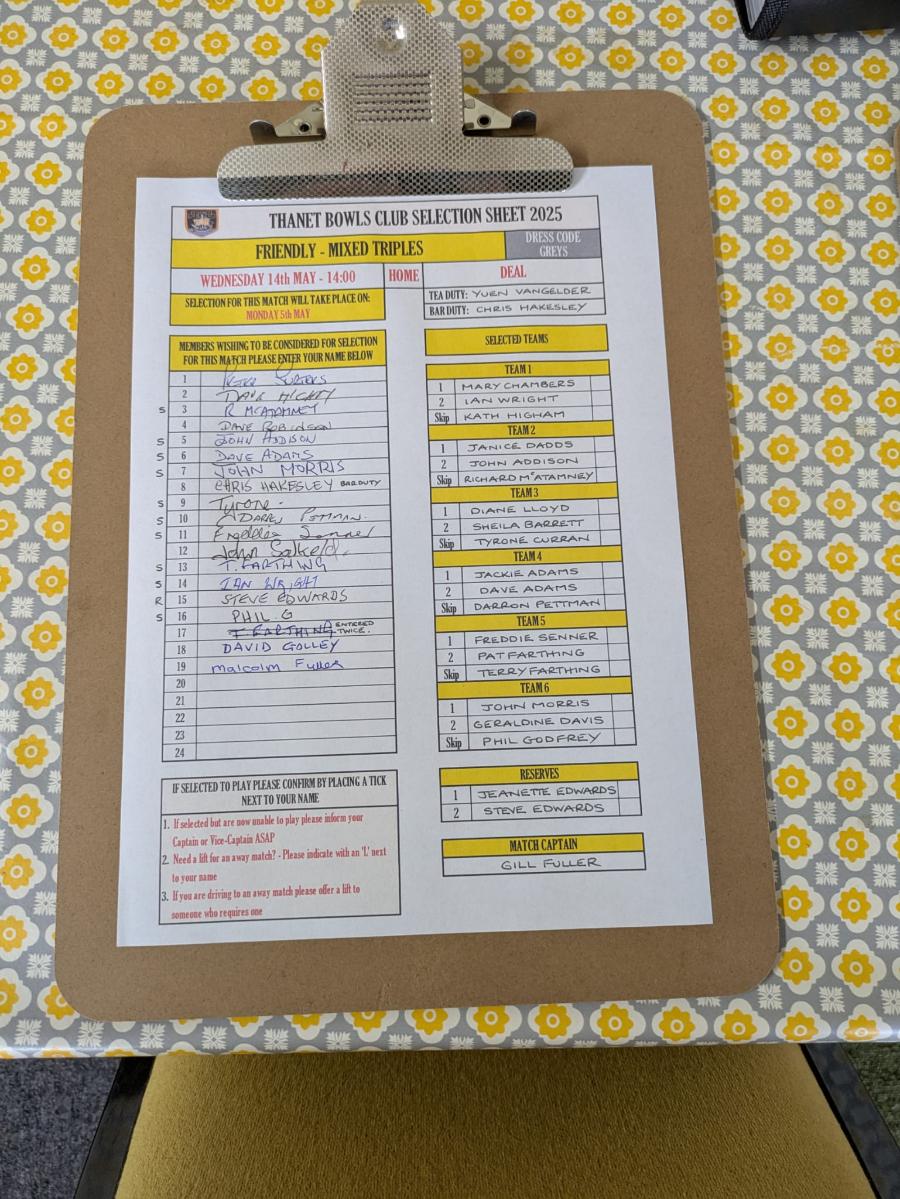 THANET BOWLS CLUB SELECTION SHEET 2025
FRIENDLY - MIXED TRIPLES
DRESS CODE
GREYS
WEDNESDAY 14th MAY - 14:00
HOME
DEAL
SELECTION FOR THIS MATCH WILL TAKE PLACE ON:
MONDAY 5th MAY
TEA DUTY: YUEN VANGELDER
BAR DUTY: CHRIS HAKESLEY
MEMBERS WISHING TO BE CONSIDERED FOR SELECTION
FOR THIS MATCH PLEASE ENTER YOUR NAME BELOW
1
2 DAVE HICKEY
S 3 R McATAMNEY
4 DAVE ROBINSON
S 5 JOHN ADDISON
S 6 DAVE ADAMS
S 7 JOHN MORRIS
8 CHRIS HAKESLEY BAR DUTY
S 9 Tyrone.
S 10 DARREN PETTMAN.
S 11 Freddie Senner
12 John Salkeld.
S 13 T. FARTHING
S 14 IAN WRIGHT
R 15 STEVE EDWARDS
S 16 PHIL G
17 T FARTHING ENTERED TWICE.
18 DAVID GOLLEY
19 Malcolm Fuller
20
21
22
23
24
SELECTED TEAMS
TEAM 1
1 MARY CHAMBERS
2 IAN WRIGHT
Skip KATH HIGHAM
TEAM 2
1 JANICE DADDS
2 JOHN ADDISON
Skip RICHARD McATAMNEY
TEAM 3
1 DIANE LLOYD
2 SHEILA BARRETT
Skip TYRONE CURRAN
TEAM 4
1 JACKIE ADAMS
2 DAVE ADAMS
Skip DARRON PETTMAN
TEAM 5
1 FREDDIE SENNER
2 PAT FARTHING
Skip TERRY FARTHING
TEAM 6
1 JOHN MORRIS
2 GERALDINE DAVIS
Skip PHIL GODFREY
RESERVES
1 JEANETTE EDWARDS
2 STEVE EDWARDS
MATCH CAPTAIN
GILL FULLER
IF SELECTED TO PLAY PLEASE CONFIRM BY PLACING A TICK
NEXT TO YOUR NAME
1. If selected but are now unable to play please inform your
Captain or Vice-Captain ASAP
2. Need a lift for an away match? - Please indicate with an 'L' next
to your name
3. If you are driving to an away match please offer a lift to
someone who requires one